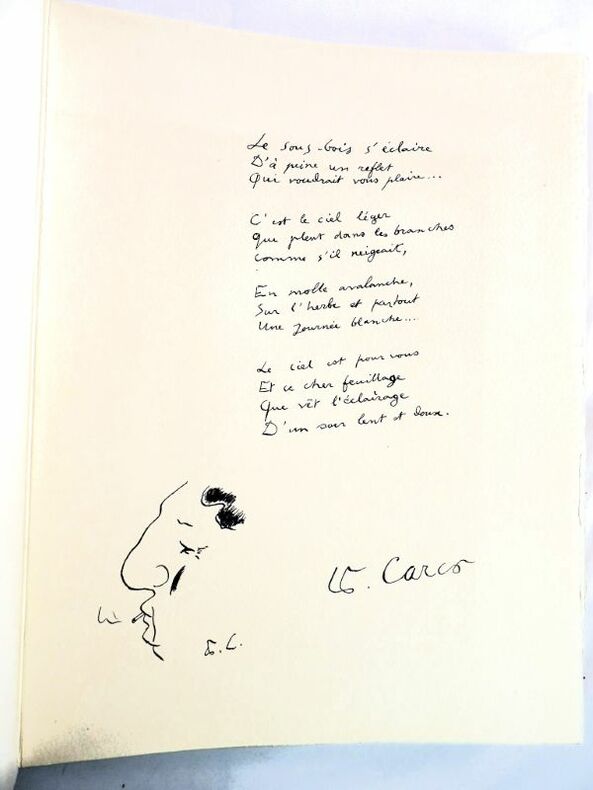 Le sous-bois s'éclaire
D'à peine un reflet
Qui voudrait vous plaire...
C'est le ciel léger
Que pleut dans les branches
Comme s'il neigeait,
En molle avalanche,
Sur l'herbe et partout
Une journée blanche....
Le ciel est pour vous
Et ce cher feuillage
Que vêt l'éclairage
D'un soir lent et doux.
F. Carco
F. C.